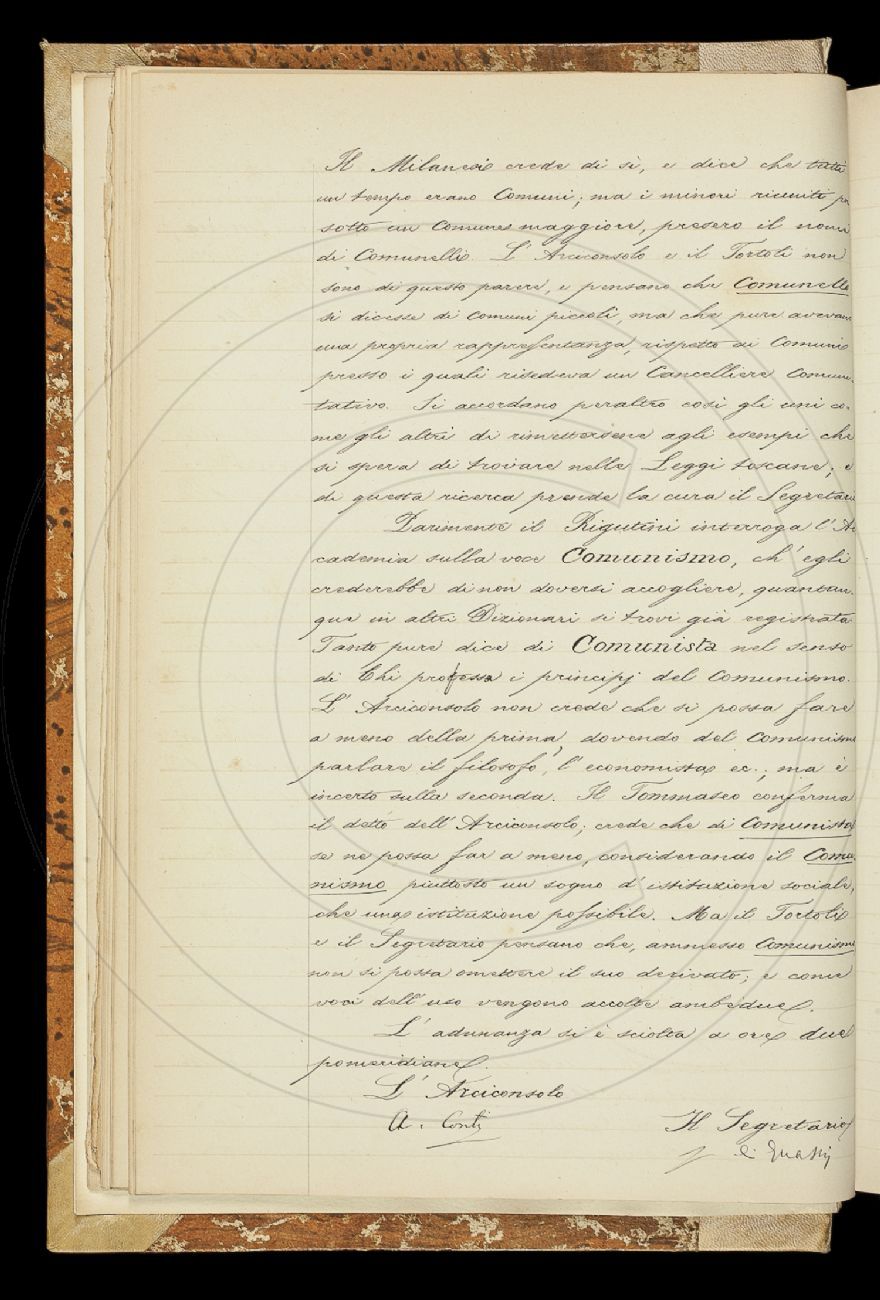 Il Milanesi crede di sì, e dice che tutti
un tempo erano Comuni; ma i minori riuniti poi
sotto un Comune maggiore, presero il nome
di Comunelli. L' Arciconsolo e il Tortoli non
sono di questo parere, e pensano che Comunello
si dicesse di Comuni piccoli, ma che pure avevano
una propria rappresentanza, rispetto ai Comuni
presso i quali risedeva un Cancelliere Comuni-
tativo. Si accordano peraltro così gli uni co-
me gli altri di rimettersene agli esempi che
si spera di trovare nelle Leggi toscane; e
di questa ricerca prende la cura il Segretario
Parimente il Rigutini interroga l' Ac
cademia sulla voce Comunismo, ch' egli
crederebbe di non doversi accogliere, quantun-
que in altri Dizionari si trovi già registrata
Tanto pure dice di Comunista nel senso
di Chi professa i principj del Comunismo.
L' Arciconsolo non crede che si possa fare
a meno della prima, dovendo del Comunismo
parlare il filosofo, l' economista ec.; ma è
incerto sulla seconda. Il Tommaseo conferma
il detto dell' Arciconsolo; crede che di Comunista
se ne possa far a meno, considerando il Comu-
nismo piuttosto un sogno d' istituzione sociale,
che una istituzione possibile. Ma il Tortoli
e il Segretario pensano che, ammesso Comunismo
non si possa omettere il suo derivato; e come
voci dell' uso vengono accolte ambedue.
L' adunanza si è sciolta a ore due
pomeridiane.
L' Arciconsolo
A. Conti
Il Segretario